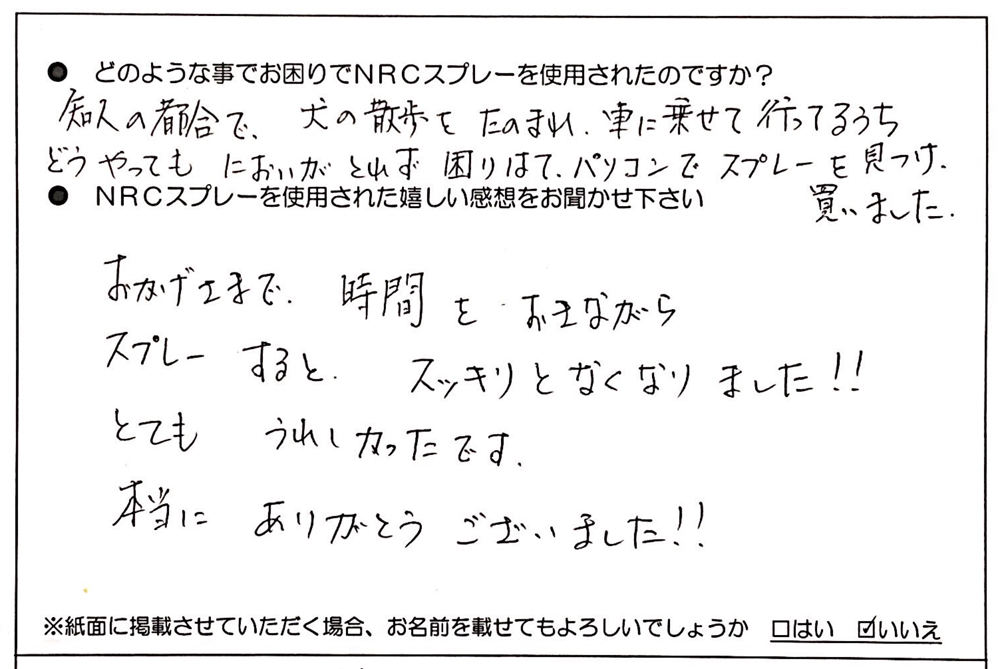 ● どのような事でお困りでNRCスプレーを使用されたのですか？
知人の都合で、犬の散歩をたのまれ、車に乗せて行ってるうち
どうやっても においがとれず 困りはて、パソコンでスプレーを見つけ、
買いました.
● NRCスプレーを使用された嬉しい感想をお聞かせ下さい
おかげさまで、時間を おきながら
スプレー すると、スッキリとなくなりました!!
とても うれしかったです.
本当に ありがとう ございました!!
※紙面に掲載させていただく場合、お名前を載せてもよろしいでしょうか □はい ☑いいえ